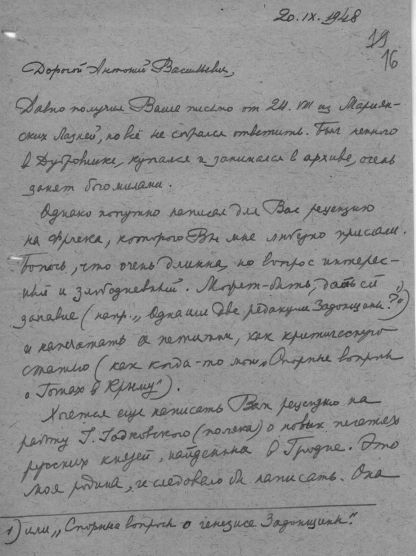 20.IX.1948
19
16
Дорогой Антоний Васильевич,
Давно получил Ваше письмо от 24.VIII из Мариан-
ских Лазней, но всё не собрался ответить. Был немного
в Дубровнике, купался и занимался в архиве, очень
занят богомилами.
Однако попутно написал для Вас рецензию
на Фрчека, которого Вы мне любезно прислали.
Боюсь, что очень длинна, но вопрос интерес-
ный и злободневный. Может-быть, дать ей
заглавие (напр., „Одна или две редакции Задонщины?"¹⁾)
и напечатать петитом, как критическую
статью (как когда-то мои „Спорные вопросы
о Готах в Крыму").
Хочется еще написать Вам рецензию на
работу Г. Годковского (поляка) о новых печатях
русских князей, найденных в Гродне. Это
моя родина, и следовало бы написать. Она
1) или „Спорные вопросы о генезисе Задонщины".